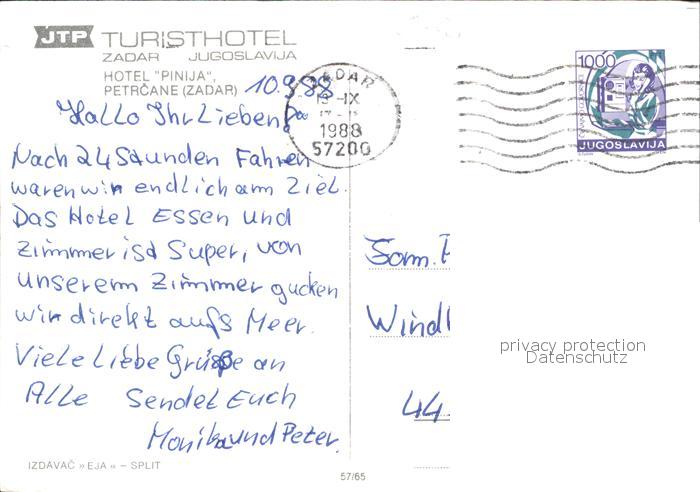 JTP TURISTHOTEL
ZADAR JUGOSLAVIJA
HOTEL "PINIJA",
PETRČANE (ZADAR)
10.9.88
Hallo Ihr Lieben!
Nach 24 Stunden Fahren
waren wir endlich am Ziel.
Das Hotel Essen und
Zimmer ist Super, von
unserem Zimmer gucken
wir direkt aufs Meer.
Viele Liebe Grüße an
Alle Sendet Euch
Monika und Peter.
IZDAVAČ »EJA« – SPLIT
57/65
ZADAR
-IX
1988
57200
1000
JUGOSLAVIJA
Windl
44
privacy protection
Datenschutz